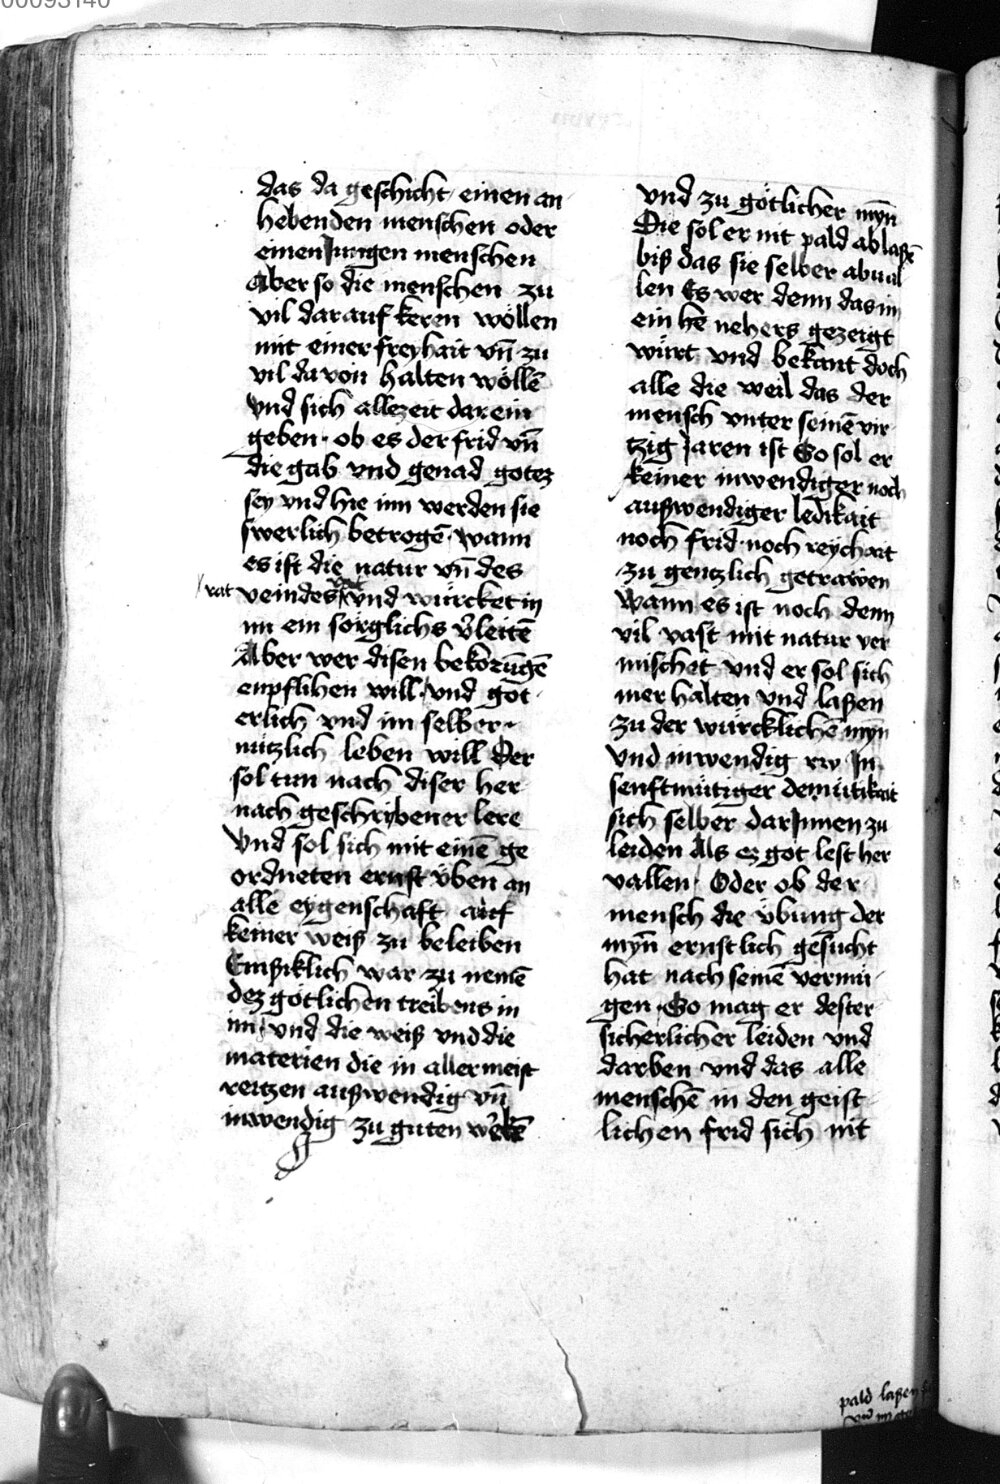 das da geschicht einen an
hebenden menschen oder
einen Jungen menschen
Aber so die menschen zu
vil darauf keren wöllen
mit einer freyhait vn̄ zu
vil da von halten wöllē
Vnd sich allezeit dar ein
geben · ob es der frid vn̄
die gab vnd genad gotez
sey vnd hie inn werden sie
swerlich betrogē · wann
es ist die natur vn̄ des
rat veindes vnd würcket in
im ein sorglichs v̄leitē
Aber wer disen bekorūgē
enpflihen will · vnd got
erlich vnd im selber
nützlich leben will Der
sol tun nach diser her
nach geschribener lere
Vnd sol sich mit einē ge
ordneten ernst vben an
alle eygenschaft auf
keiner weiß zu beleiben
Emßiklich war zu nemē
dez götlichen treibens in
im · vnd die weiß vnd die
materien die in allermeist
reitzen außwendig vn̄
inwendig zu guten w̄kē
vnd zu götlicher myn̄
Die sol er nit pald ablaßē
biß das sie selber abual
len Es wer denn das im
ein hē nehers gezeigt
würt vnd bekant doch
alle die weil das der
mensch vnter seinē vir
tzig Jaren ist So sol er
keiner inwendiger noch
außwendiger ledikait
noch frid noch reychait
zu gentzlich getrawen
Wann es ist noch denn
vil vast mit natur ver
mischet vnd er sol sich
mer halten vnd laßen
zu der würcklichē myn̄
vnd inwendig rw In
senftmütiger demütikait
sich selber darInnen zu
leiden Als ez got lest her
vallen · Oder ob der
mensch die vbung der
myn̄ ernstlich gesucht
hat nach seinē vermü
gen · So mag er dester
sicherlicher leiden vnd
darben vnd das alle
menschē in den geist
lichen frid sich nit
pald laßen
00093140